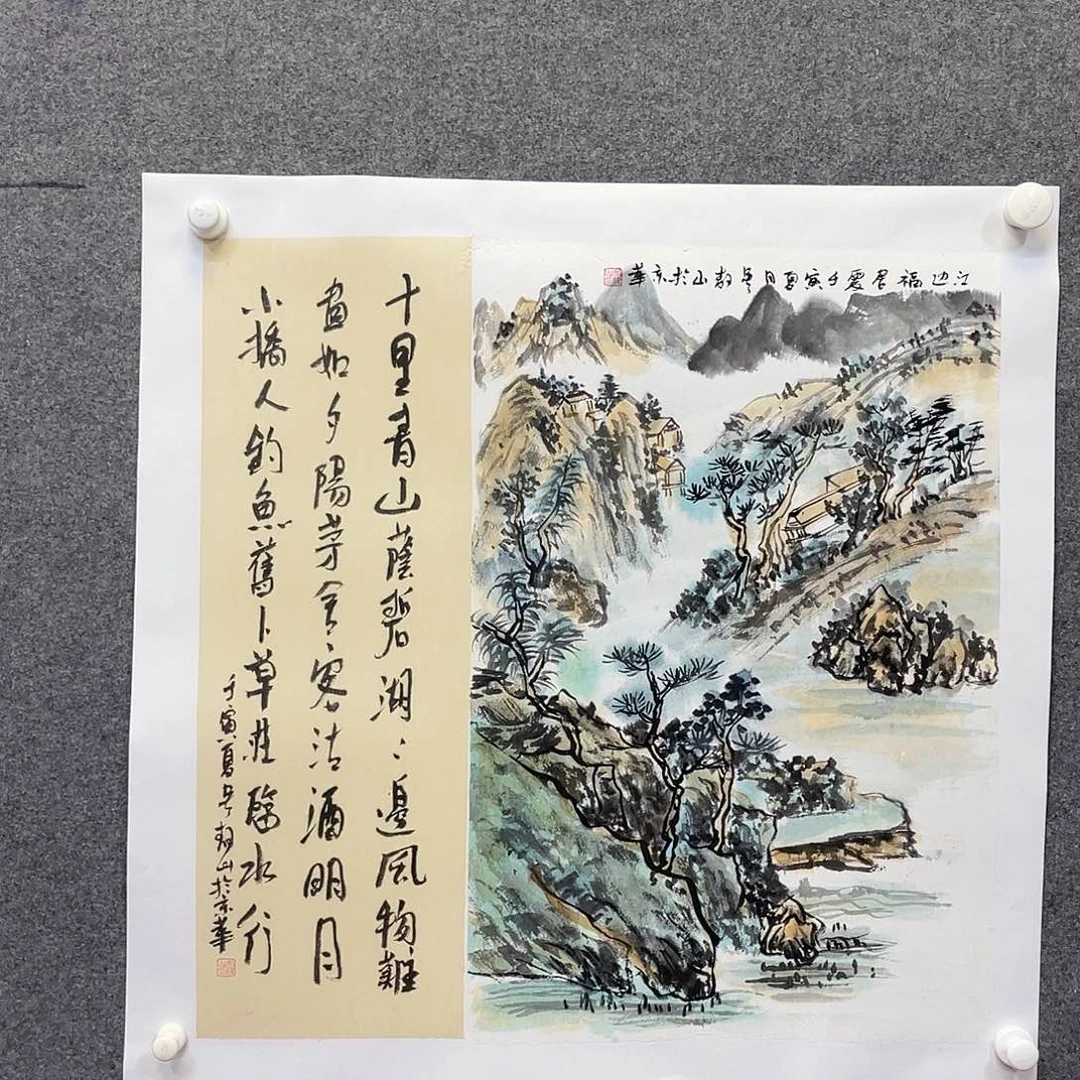 江边福居
壬寅夏月吴静山於京華
十里青山蔭碧湖〻邊風物難
畫如夕陽茅舍客沽酒明月
小橋人釣魚舊卜草莊臨水竹
壬寅夏吴静山於京華